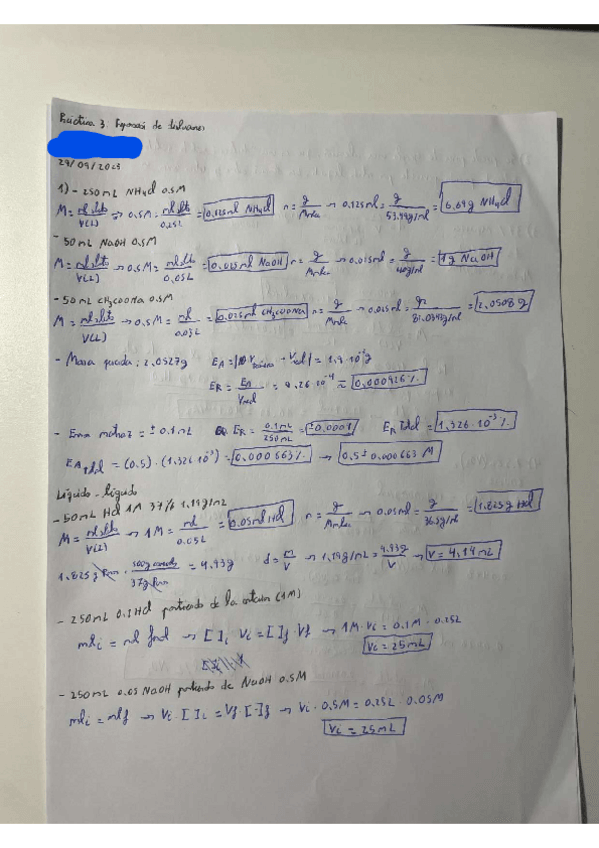 Práctica 3. Preparación de disoluciones
29/09/2023
1) - 250mL NH4Cl 0.5M
M = mol slto / V(L) => 0.5M = mol slto / 0.25L = 0.125mol NH4Cl n = g / Mmolec → 0.125mol = g / 53.49g/mol = 6.69g NH4Cl
- 50mL NaOH 0.5M
M = mol slto / V(L) → 0.5M = mol slto / 0.05L = 0.025mol NaOH n = g / Mmolec → 0.025mol = g / 40g/mol = 1g NaOH
- 50mL CH3COONa 0.5M
M = mol slto / V(L) → 0.5M = mol / 0.05L = 0.025mol CH3COONa n = g / Mmolec → 0.025mol = g / = 2.0508g
- Masa pesada: 2.0527g EA = = 1.9·10⁻³g
ER = EA / Vreal = 9.26·10⁻⁴ = 0.000926%
- Error matraz = ± 0.1mL ER = 0.1mL / 250mL = ±0.0001 ER total = 1.326·10⁻³%
EA total = (0.5)·(1.326·10⁻³) = 0.000663% → 0.5 ± 0.000663 M
Líquido - líquido
- 50mL HCl 1M 37% 1.19g/mL
M = mol slto / V(L) → 1M = mol / 0.05L = 0.05mol HCl n = g / Mmolec → 0.05mol = g / 36.5g/mol = 1.825g HCl
1.825g · 100g / 37g = 4.93g d = m / V → 1.19g/mL = 4.93g / V → V = 4.14mL
- 250mL 0.1 HCl partiendo de la anterior (1M)
mol i = mol final → [ ]i Vi = [ ]f · Vf → 1M · Vi = 0.1M · 0.25L
Vi = 25mL
- 250mL 0.05 NaOH partiendo de NaOH 0.5M
mol i = mol f → Vi · [ ]i = Vf · [ ]f → Vi · 0.5M = 0.25L · 0.05M
Vi = 25mL